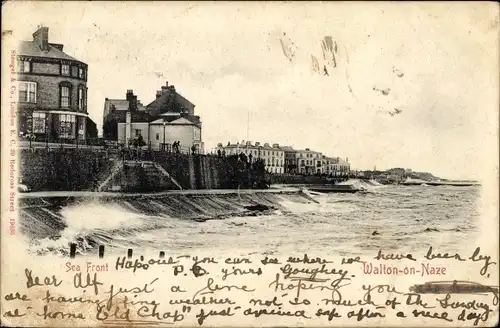 Stengel & Co., London E. C. 39 Redcross Str. 19685
Sea Front
Walton-on-Naze
Hapo you can see where we have been by
P.C. yours Goughey
Dear Alf just a line hoping you
are having fine weather not so much of the Sunday
at home Old Chap just arrived safe after a nice day